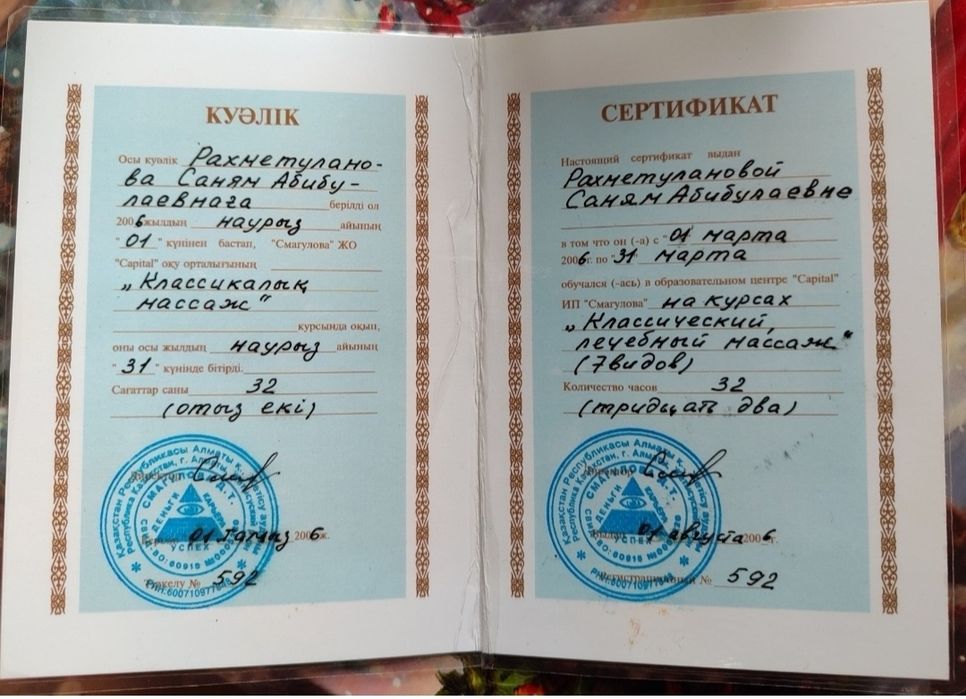 КУӘЛІК
Осы куәлік Рахметулано-
ва Саням Абибу-
лаевнаға берілді ол
2006 жылдың наурыз айының
"01" күнінен бастап, "Смагулова" ЖО
"Capital" оқу орталығының
„Классикалық
массаж"
курсында оқып,
оны осы жылдың наурыз айының
"31" күнінде бітірді.
Сағаттар саны 32
(отыз екі)
Қазақстан Республикасы Алматы қ.
Республика Казахстан, г. Алматы
СМАГУЛОВА Д.Т.
ДЕНЬГИ КАРЬЕРА
УСПЕХ
01 тамыз 2006 ж.
Тіркелу № 592
СЕРТИФИКАТ
Настоящий сертификат выдан
Рахметулановой
Саням Абибулаевне
в том что он (-а) с "01 марта
2006г. по "31 марта
обучался (-ась) в образовательном центре "Capital"
ИП "Смагулова" на курсах
„Классический,
лечебный массаж"
(7видов)
Количество часов 32
(тридцать два)
Қазақстан Республикасы Алматы қ.
Республика Казахстан, г. Алматы
СМАГУЛОВА Д.Т.
ДЕНЬГИ КАРЬЕРА
УСПЕХ
Директор
Выдан 01 августа 2006
Регистрационный № 592